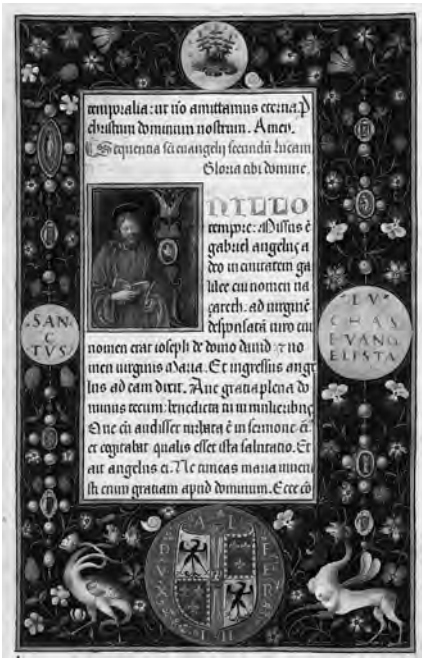 temporalia: ut nō amittamus eterna. P
christum dominum nostrum. Amen.
Sequentia sci euangelij secundū lucam
Gloria tibi domine.
N ILLO
tempre: Missus ē
gabriel angelus a
deo in ciuitatem ga
lilee cui nomen na
zareth. ad uirginē
desponsatā uiro cui
nomen erat ioseph de domo dauid: z no
men uirginis Maria. Et ingressus ange
lus ad eam dixit. Aue gratia plena do
minus tecum: benedicta tu in mulieribus
Que cū audisset turbata ē in sermone ei
et cogitabat qualis esset ista salutatio. Et
ait angelus ei. Ne timeas maria inueni
sti enim gratiam apud dominum. Ecce cō
SAN
C
TVS
LV
CHAS
EVANG
ELISTA
AL
FER
II
DVX